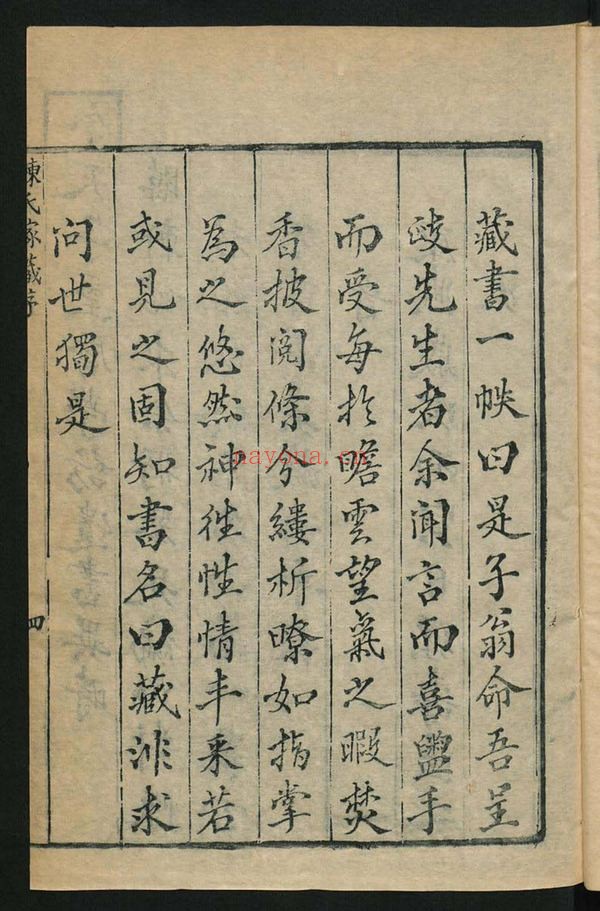 藏書一帙曰是子翁命吾呈
政先生者余闻言而喜盥手
而受每於瞻雲望氣之暇焚
香披閱條分縷析暸如指掌
為之悠然神徃性情丰采若
或見之固知書名曰藏非求
問世獨是
陳氏家藏序
四
nayona.cn